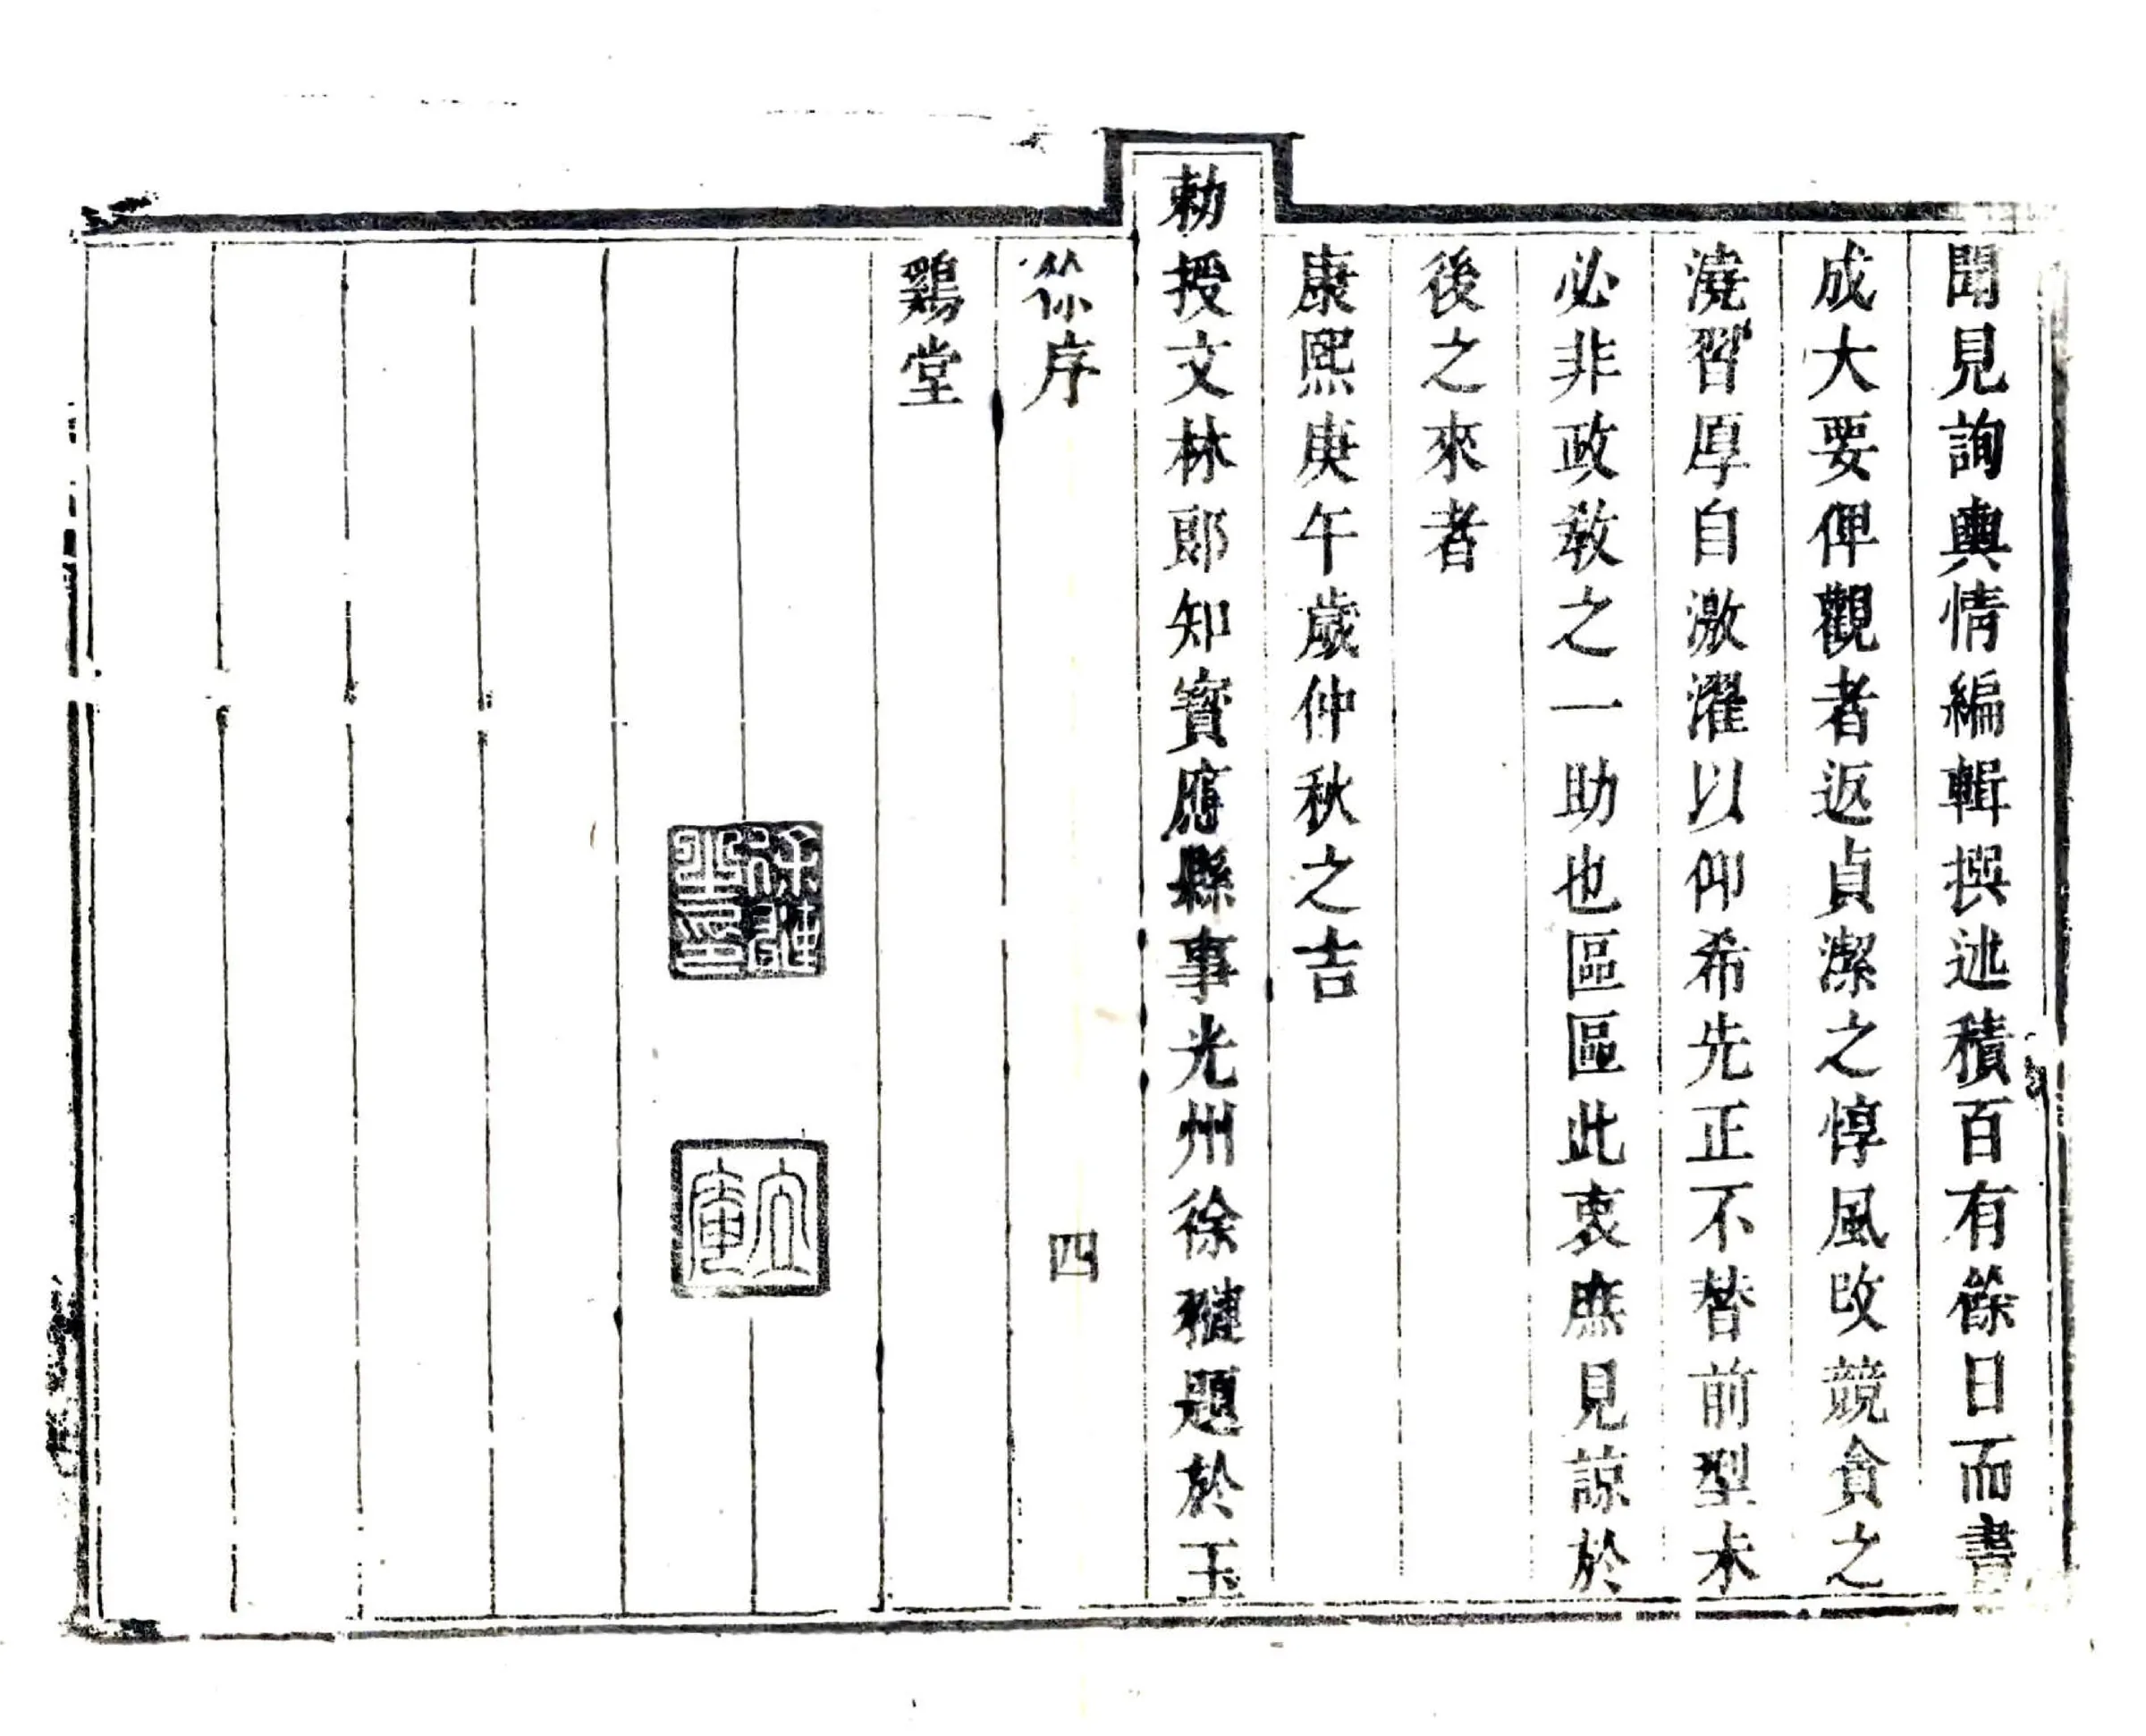 聞見詢輿情編輯撰述積百有餘日而書
成大要俾觀者返貞潔之惇風改競貪之
澆習厚自激濯以仰希先正不替前型未
必非政敎之一助也區區此衷庶見諒於
後之來者
康熙庚午歲仲秋之吉
勅授文林郎知寳應縣事光州徐䎖題於玉
徐序
四
鷄堂